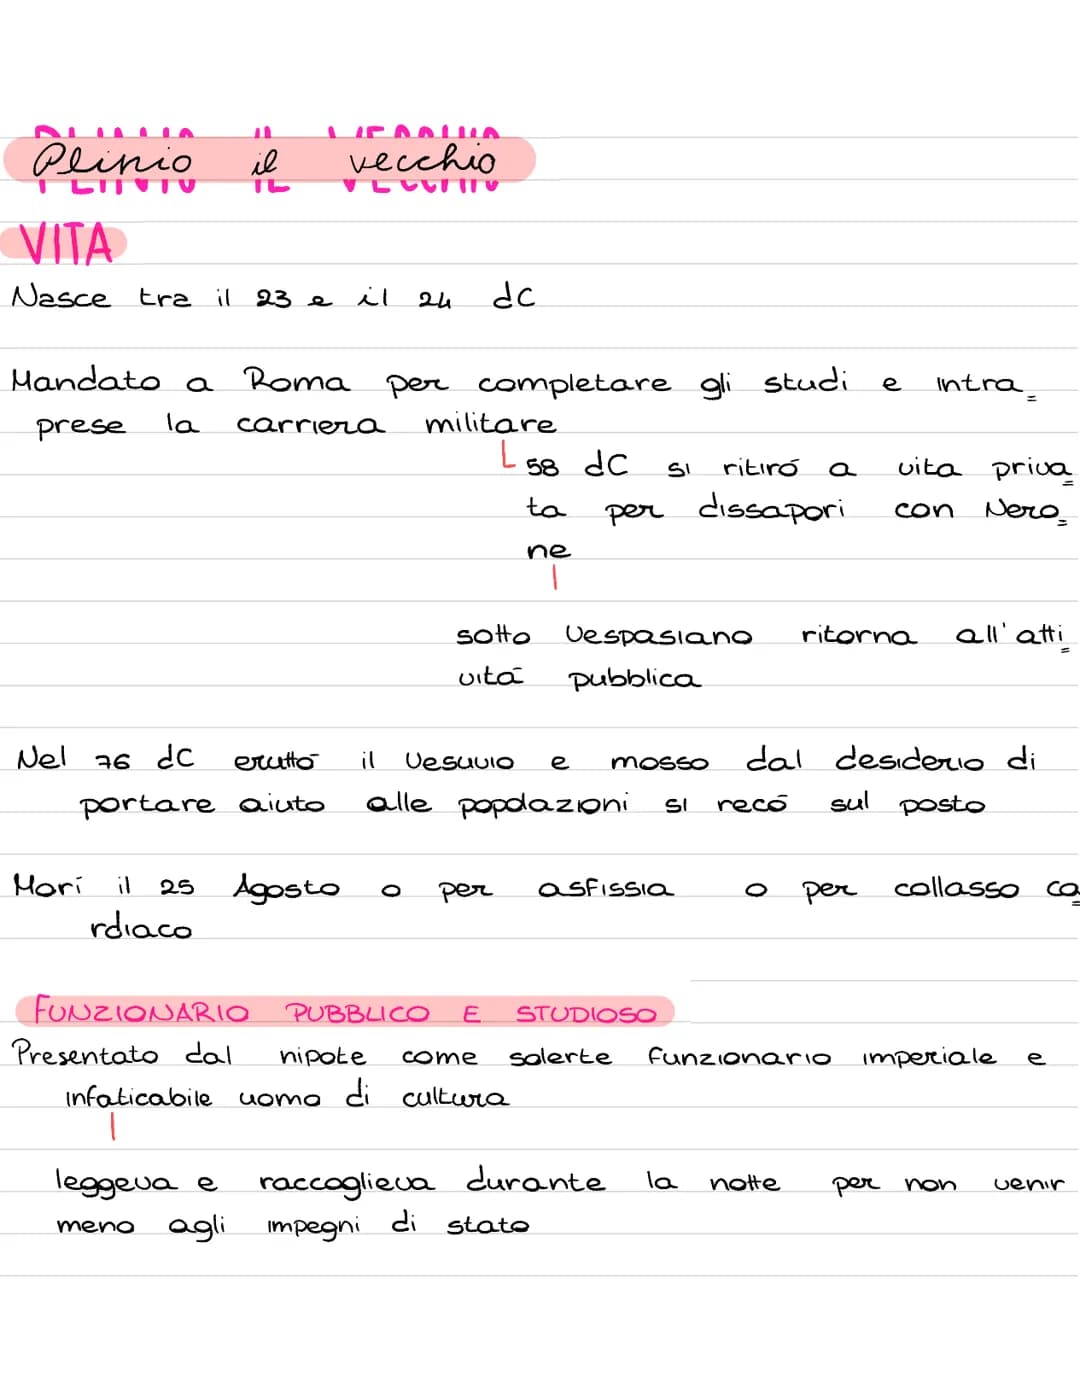 PLINIO IL VECCHIO
Plinio il vecchio
VITA
Nasce tra il 23 e il 24 dC
Mandato a Roma per completare gli studi e intra=
prese la carriera militare
58 dC si ritiró a vita priva=
ta per dissapori con Nero=
ne
sotto Vespasiano ritorna all'atti=
vitá pubblica
Nel 76 dC eruttó il Vesuvio e mosso dal desiderio di
portare aiuto alle popolazioni si recó sul posto
Morí il 25 Agosto o per asfissia o per collasso ca=
rdiaco
FUNZIONARIO PUBBLICO E STUDIOSO
Presentato dal nipote come solerte funzionario imperiale e
infaticabile uomo di cultura
leggeva e raccoglieva durante la notte per non venir
meno agli impegni di stato